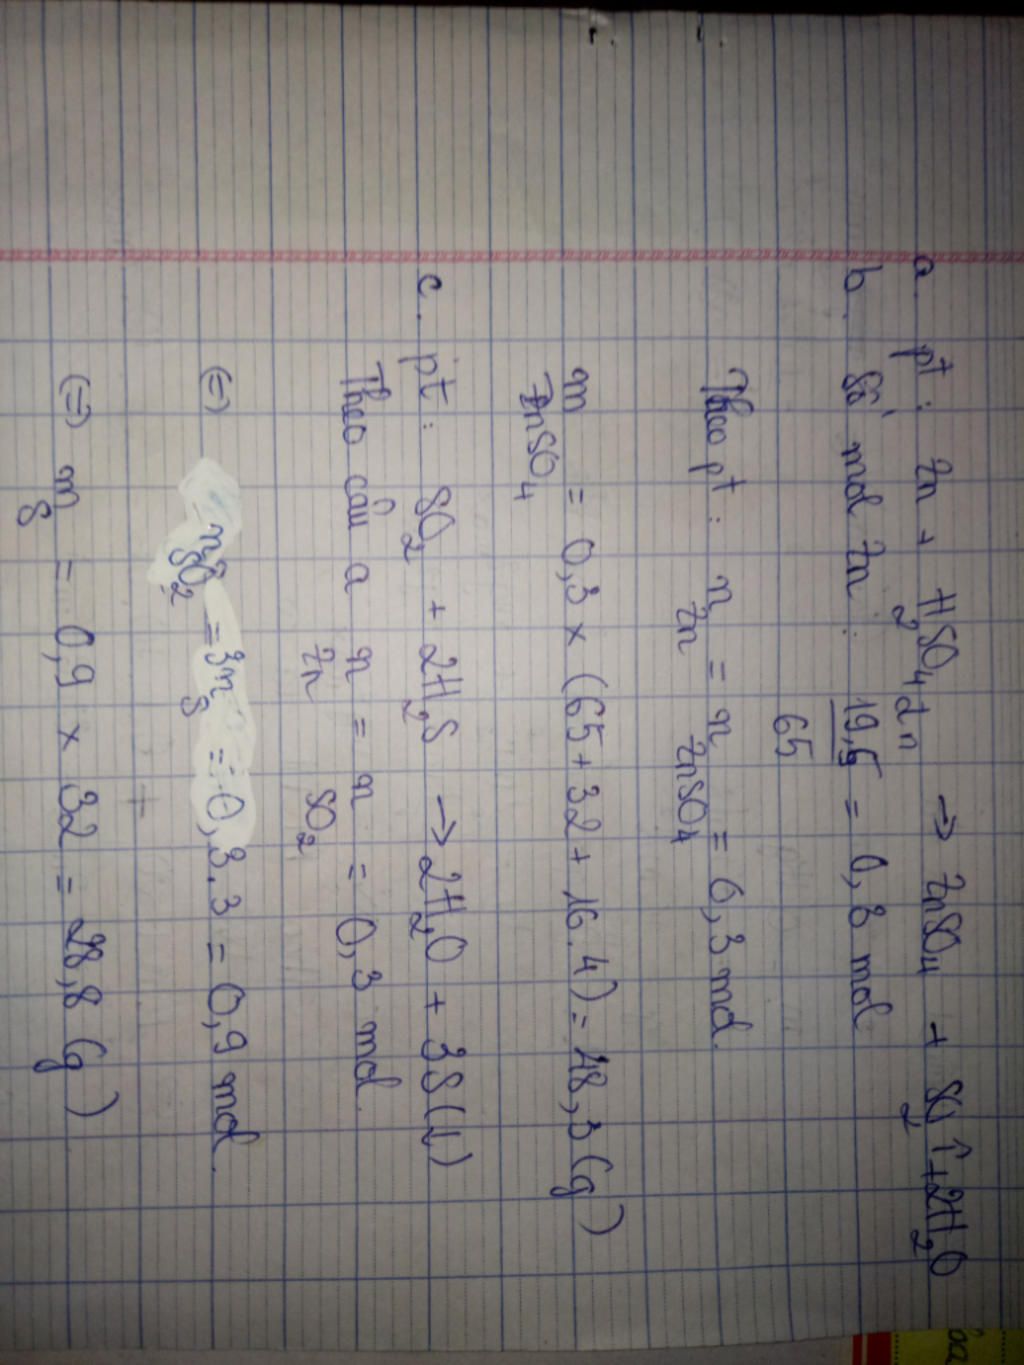 a. pt: Zn + H2SO4 dn → ZnSO4 + SO2↑ + 2H2O
b. Số mol Zn : 19,5/65 = 0,3 mol
Theo pt: nZn = nZnSO4 = 0,3 mol.
mZnSO4 = 0,3 × (65 + 32 + 16.4) = 48,3 (g)
c. pt: SO2 + 2H2S → 2H2O + 3S(↓)
Theo câu a nZn = nSO2 = 0,3 mol.
(=) nSO2 = 3nS = 0,3.3 = 0,9 mol.
(=) mS = 0,9 × 32 = 28,8 (g)